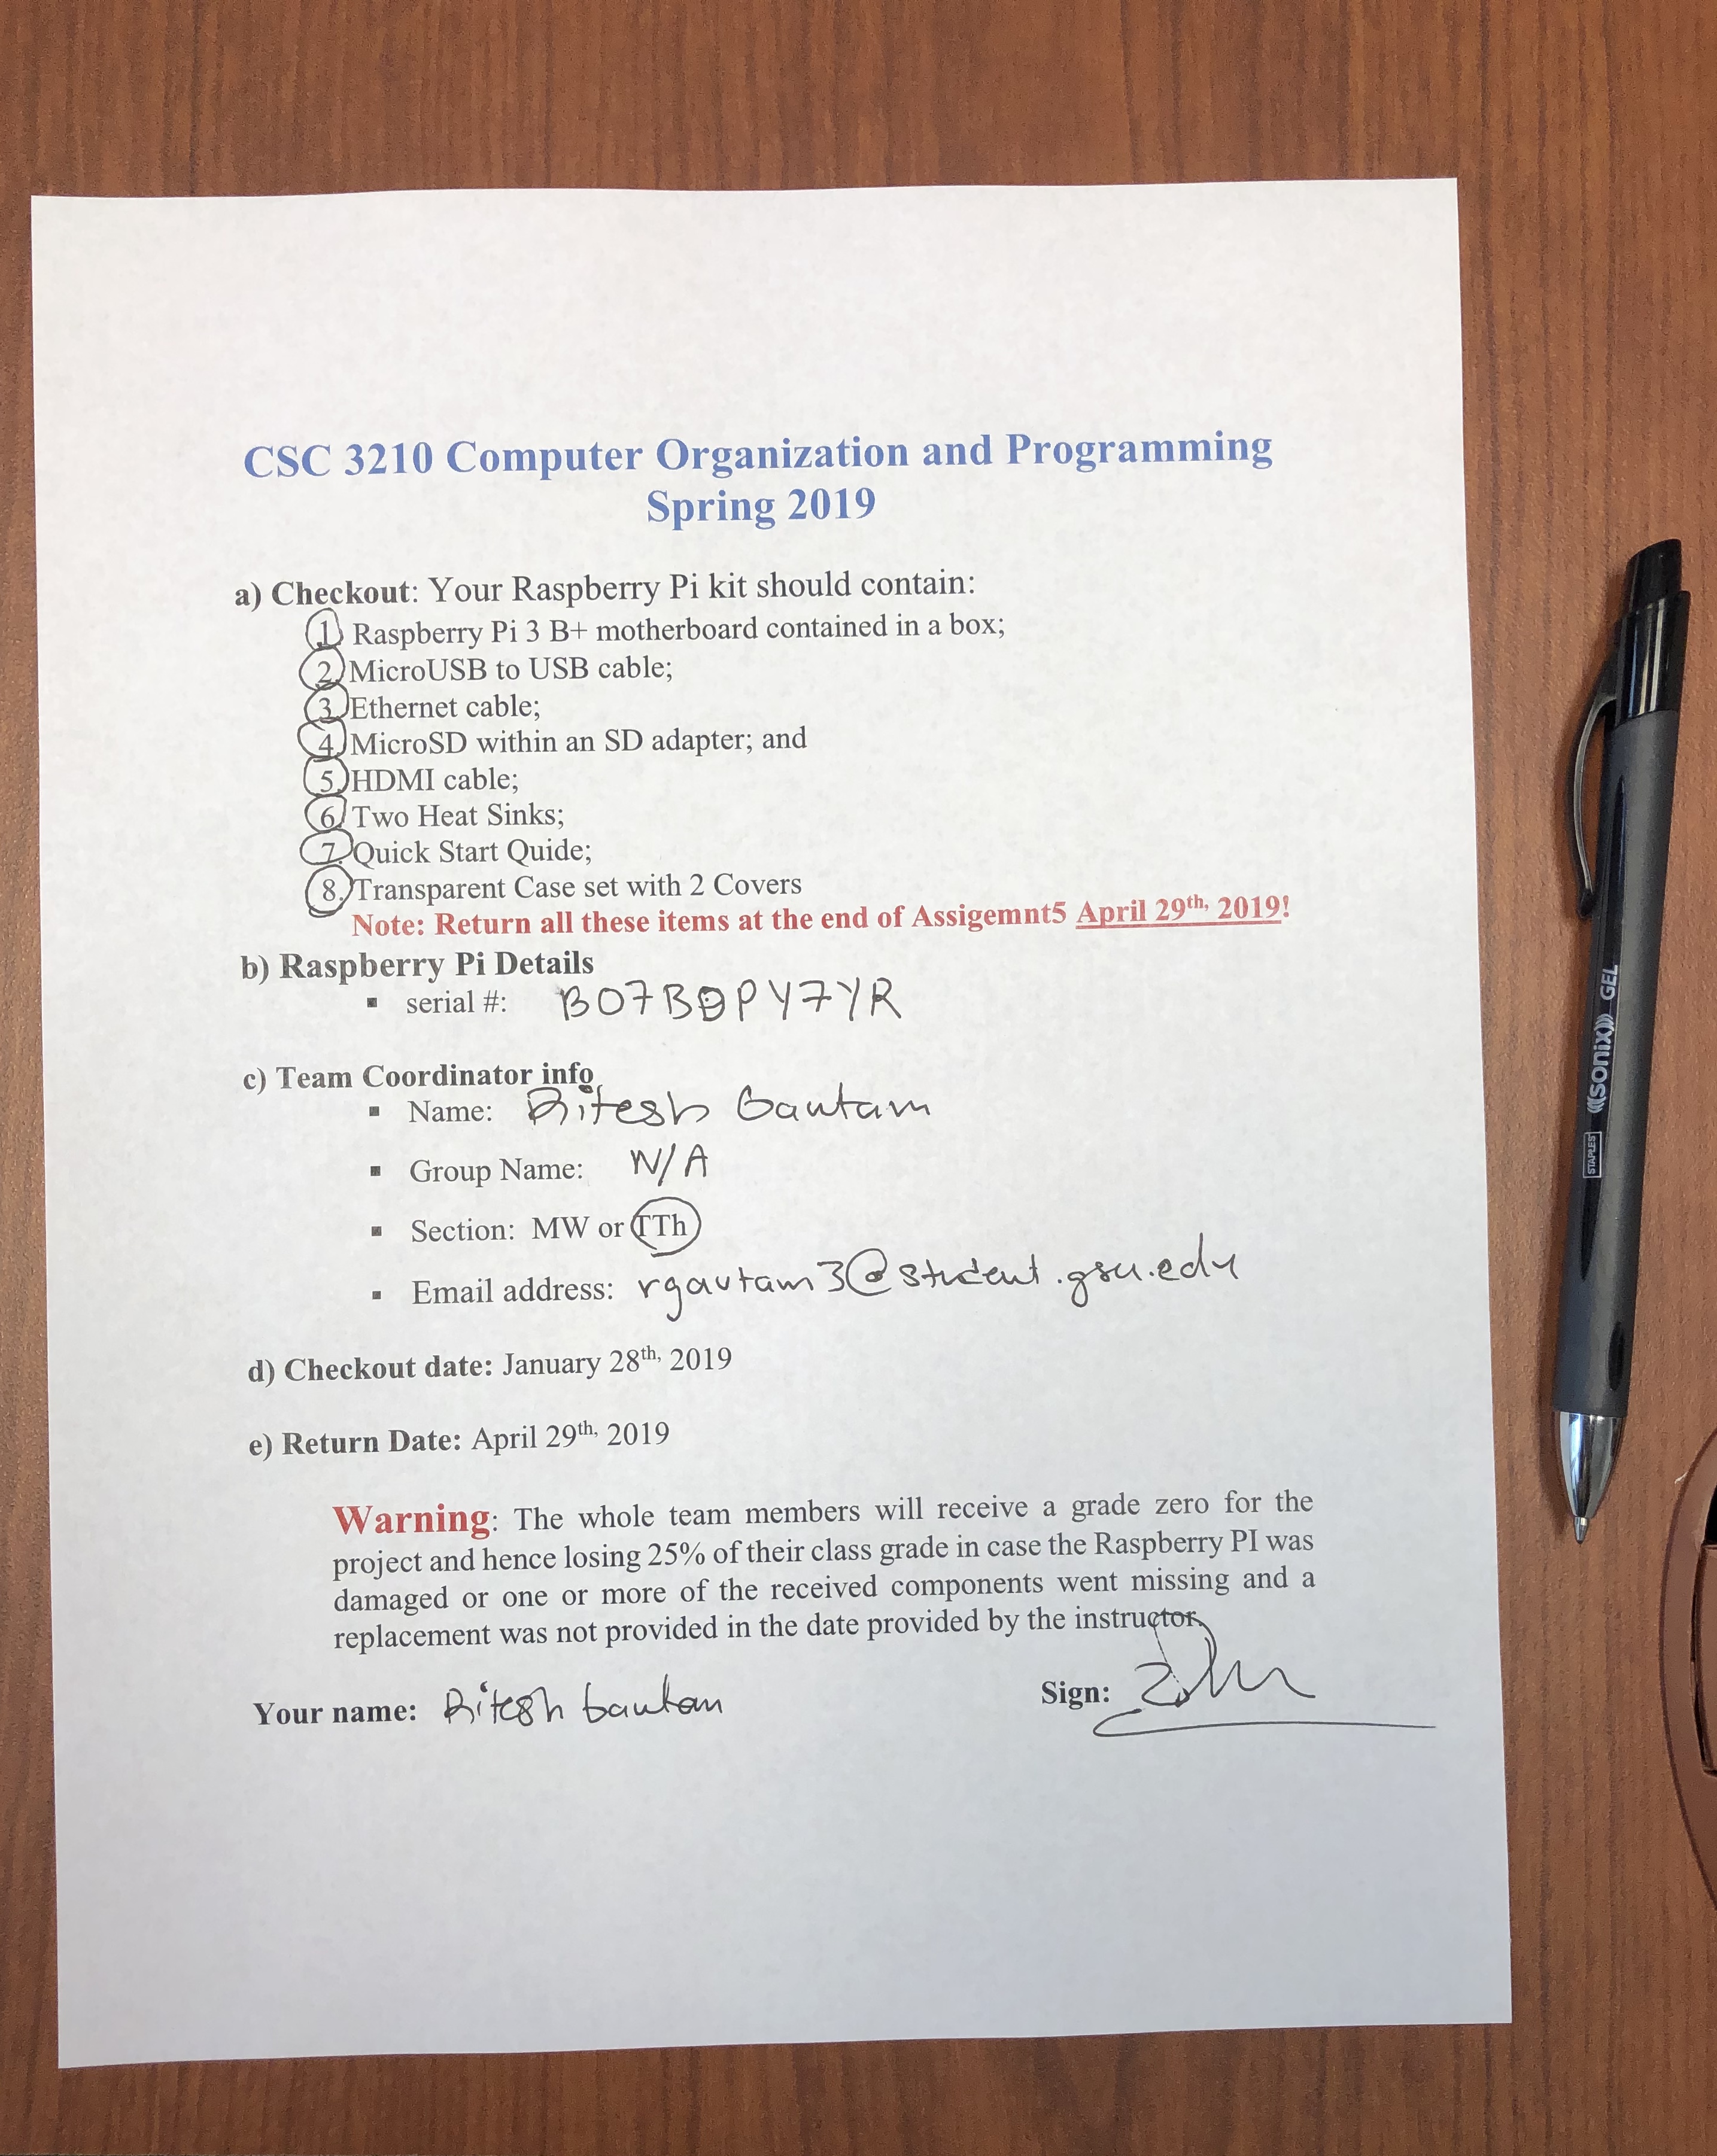 CSC 3210 Computer Organization and Programming
Spring 2019
a) Checkout: Your Raspberry Pi kit should contain:
1. Raspberry Pi 3 B+ motherboard contained in a box;
2. MicroUSB to USB cable;
3. Ethernet cable;
4. MicroSD within an SD adapter; and
5. HDMI cable;
6. Two Heat Sinks;
7. Quick Start Quide;
8. Transparent Case set with 2 Covers
Note: Return all these items at the end of Assigemnt5 April 29th, 2019!
b) Raspberry Pi Details
▪ serial #: B07BDPY7YR
c) Team Coordinator info
▪ Name: Ritesh Gautam
▪ Group Name: N/A
▪ Section: MW or TTh
▪ Email address: rgautam3@student.gsu.edu
d) Checkout date: January 28th, 2019
e) Return Date: April 29th, 2019
Warning: The whole team members will receive a grade zero for the
project and hence losing 25% of their class grade in case the Raspberry PI was
damaged or one or more of the received components went missing and a
replacement was not provided in the date provided by the instructor.
Your name: Ritesh Gautam
Sign:
STAPLES (((SONIX))) GEL